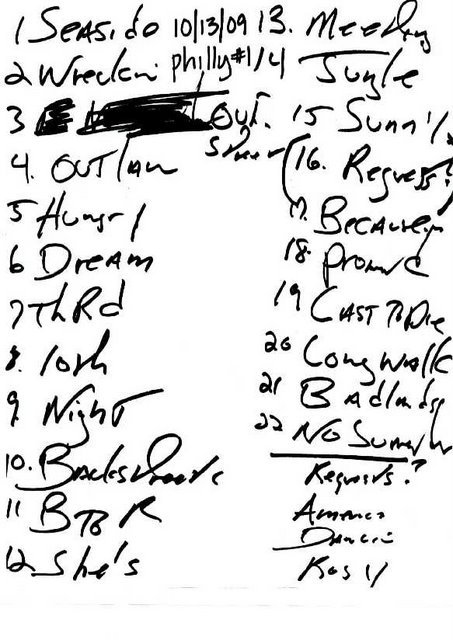 1 Seaside 10/13/09
2 Wreckin philly #1/4
3 Out.
Street
4. Outlaw
5 Hungry
6 Dream
7 ThRd
8. 10th
9. Night
10. Backstreets
11 BTOR
12 She's
13. Meeting
14 Jungle
15 Sunny
(16. Request?)
17. Because
18. Promised
19 Cast To Die
20 Long Walk
21 Badlands
22 No Surrender
Requests?
America
Dancin
Rosy